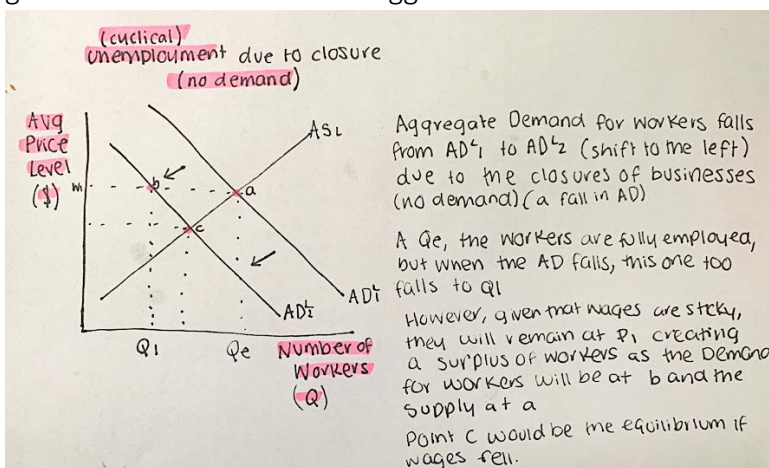 (cyclical)
unemployment due to closure
(no demand)
Avg
Price
Level
($)
ASL
W1
b
a
c
ADL1
ADL2
Q1
Qe
Number of
Workers
(Q)
Aggregate Demand for workers falls
from ADL1 to ADL2 (shift to the left)
due to the closures of businesses
(no demand) (a fall in AD)
A Qe, the workers are fully employed,
but when the AD falls, this one too
falls to Q1
However, given that wages are stcky,
they will remain at P1 creating
a surplus of workers as the Demand
for workers will be at b and the
supply at a
Point C would be the equilibrium if
wages fell.